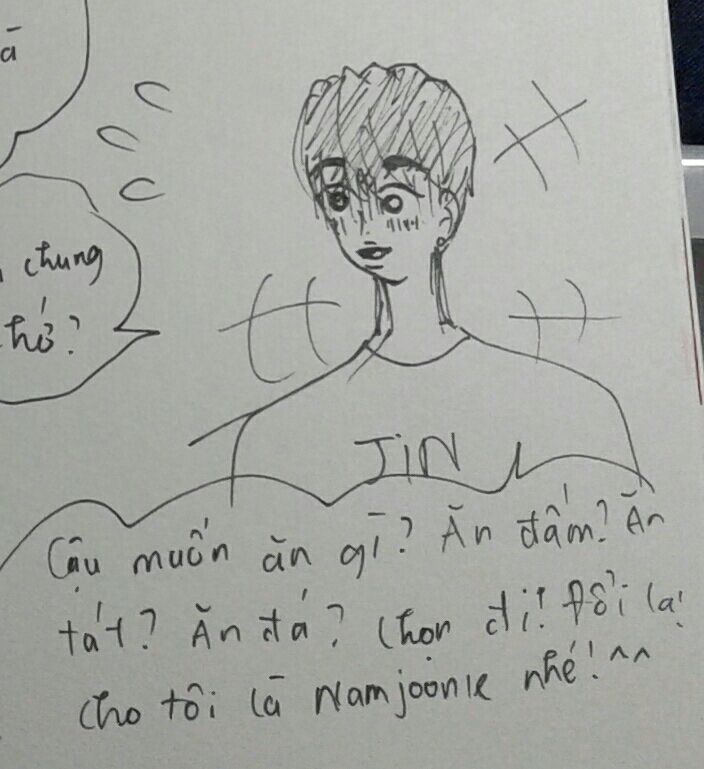 ã
chung
thớ?
JIN
Cậu muốn ăn gì? Ăn đấm? Ăn
tát? Ăn đá? Chọn đi! Đổi lại
cho tôi là Namjoonie nhé!^^